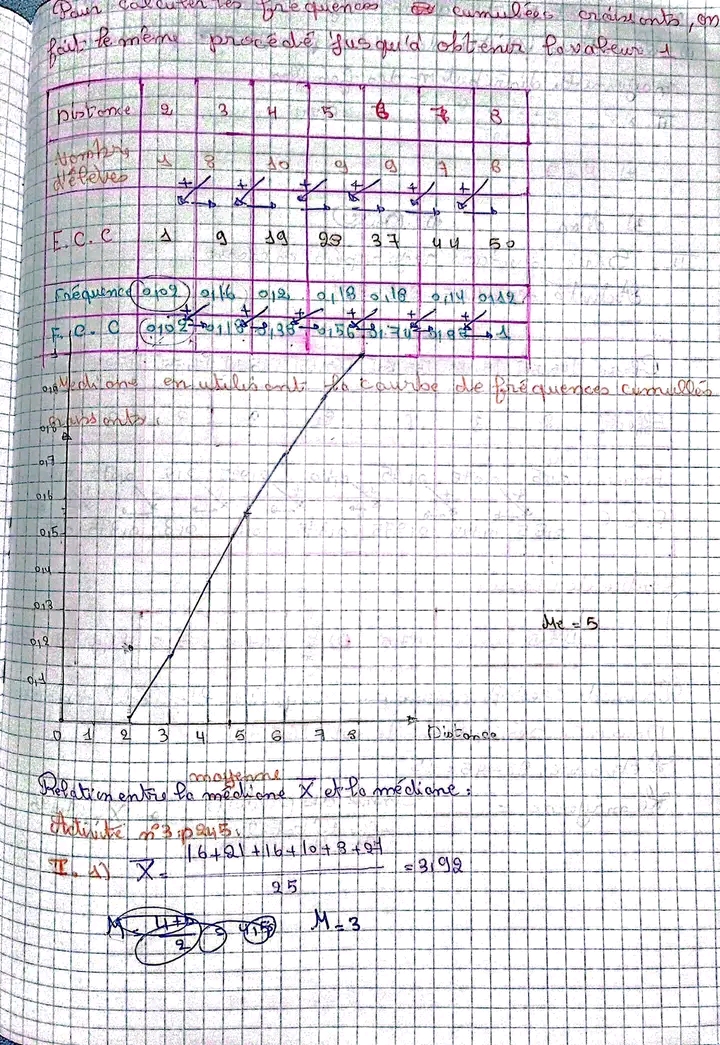 Pour calculer les fréquences cumulées croissants, on
fait le même procédé jusqu'à obtenir la valeur 1
Distance 2 3 4 5 6 7 8
Nombre d'élèves 1 8 10 9 9 7 6
+ + + + + +
E.C.C 1 9 19 28 37 44 50
Fréquence 0,02 0,16 0,2 0,18 0,18 0,14 0,12
+ + + + + +
F.C.C 0,02 0,18 0,38 0,56 0,74 1
1
Médiane en utilisant la courbe de fréquences cumullés
0,7
0,6
0,5
0,4
0,3
Me = 5
0,2
0,1
0 1 2 3 4 5 6 7 8 Distance
moyenne
Relation entre la médiane X̄ et la médiane :
Activité n°3 p245.
I. 1) X̄ = 16+21+16+10+8+27 / 25 = 3,92
M = 3